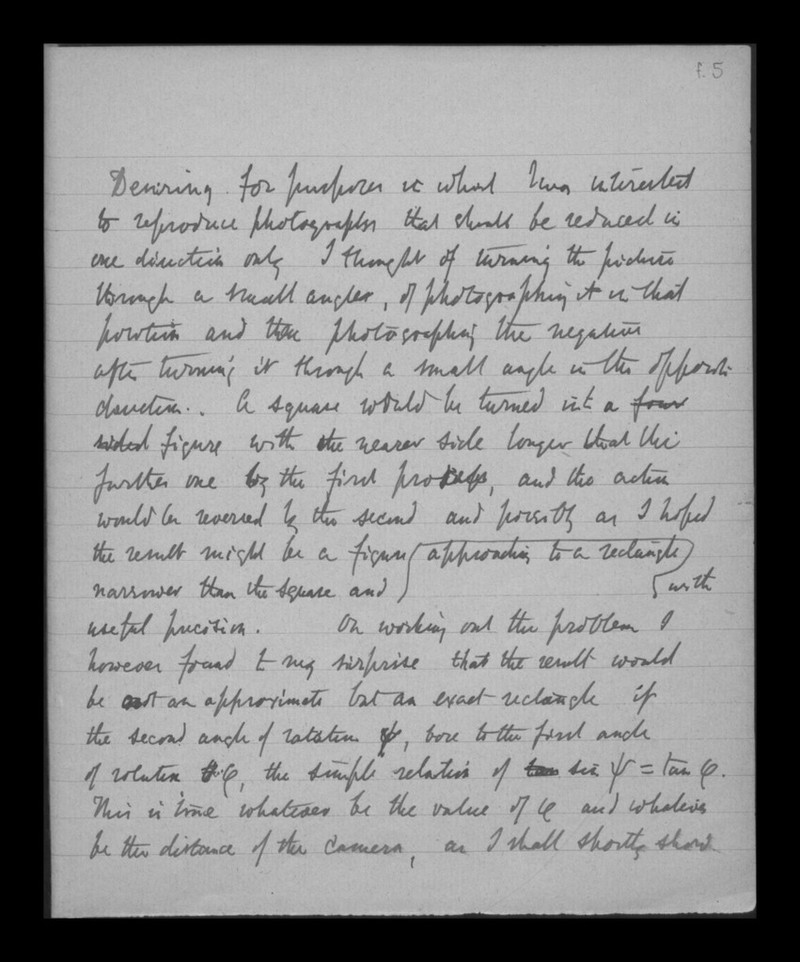 f. 5
Desiring for purposes in which I was interested
to reproduce photographs that should be reduced in
one direction only I thought of turning the picture
through a small angle, of photographing it in that
position and then photographing the negative
after turning it through a small angle in the opposite
direction. A square would be turned into a four
sided figure with the nearer side longer than the
further one by the first process, and the action
would be reversed by the second and possibly as I hoped
the result might be a figure (approaching to a rectangle)
narrower than the square and with
useful precision. On working out the problem I
however found to my surprise that the result would
be not an approximate but an exact rectangle if
the second angle of rotation ψ, bore to the first angle
of rotation φ, the simple relation of tan sin ψ = tan φ.
This is true whatever be the value of φ and whatever
be the distance of the camera, as I shall shortly show